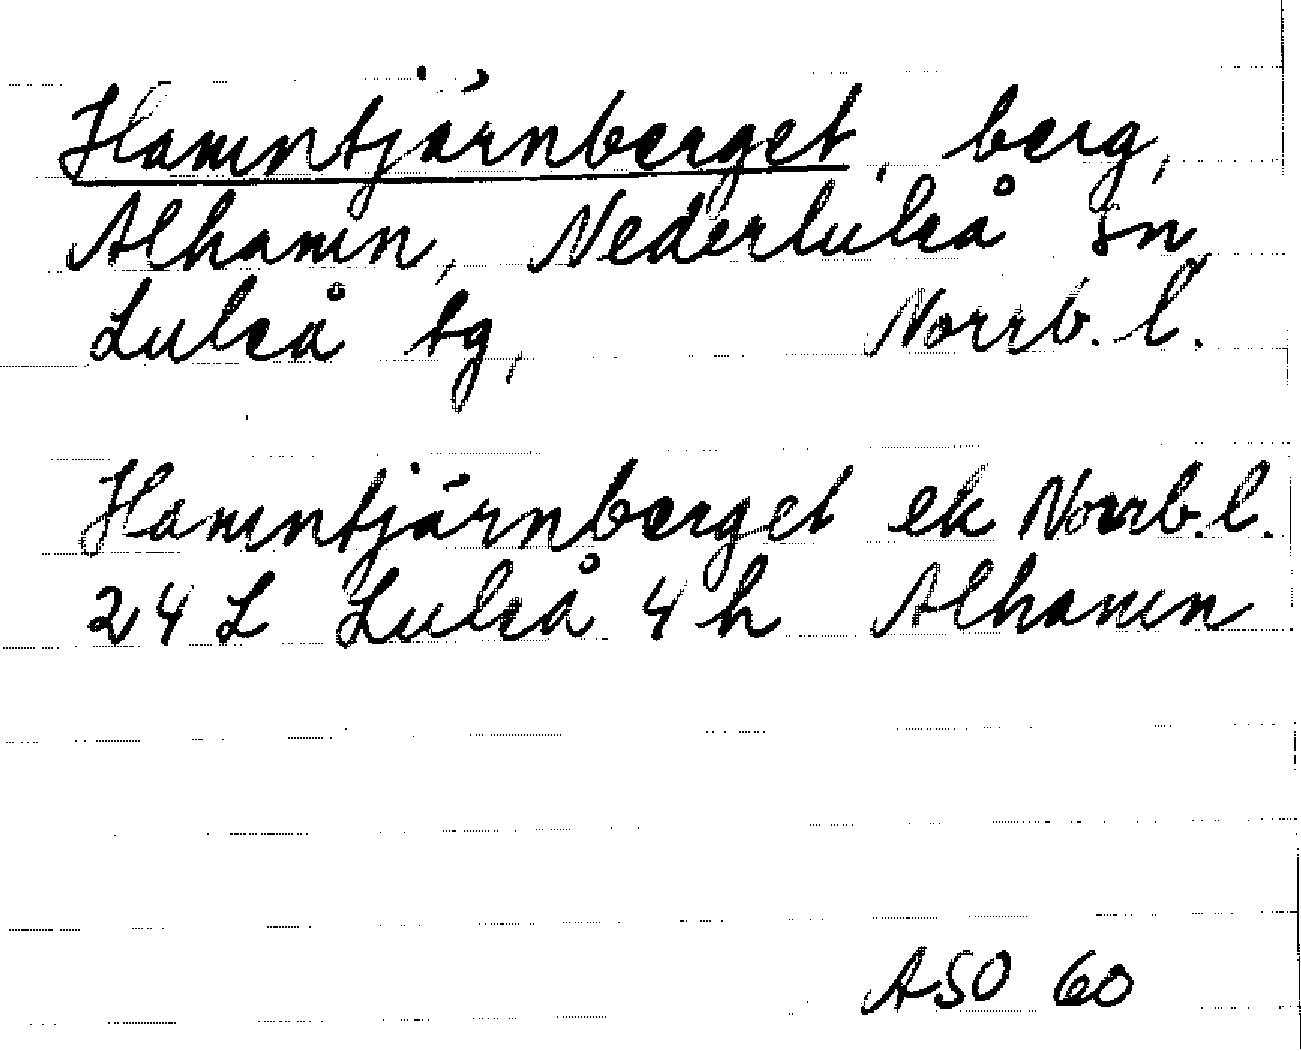 Hamntjärnberget, berg,
Alhamn, Nederluleå sn
Luleå tg, Norrb. l.
Hamntjärnberget ek Norrb. l.
24 L Luleå 4 h Alhamn
ASO 60